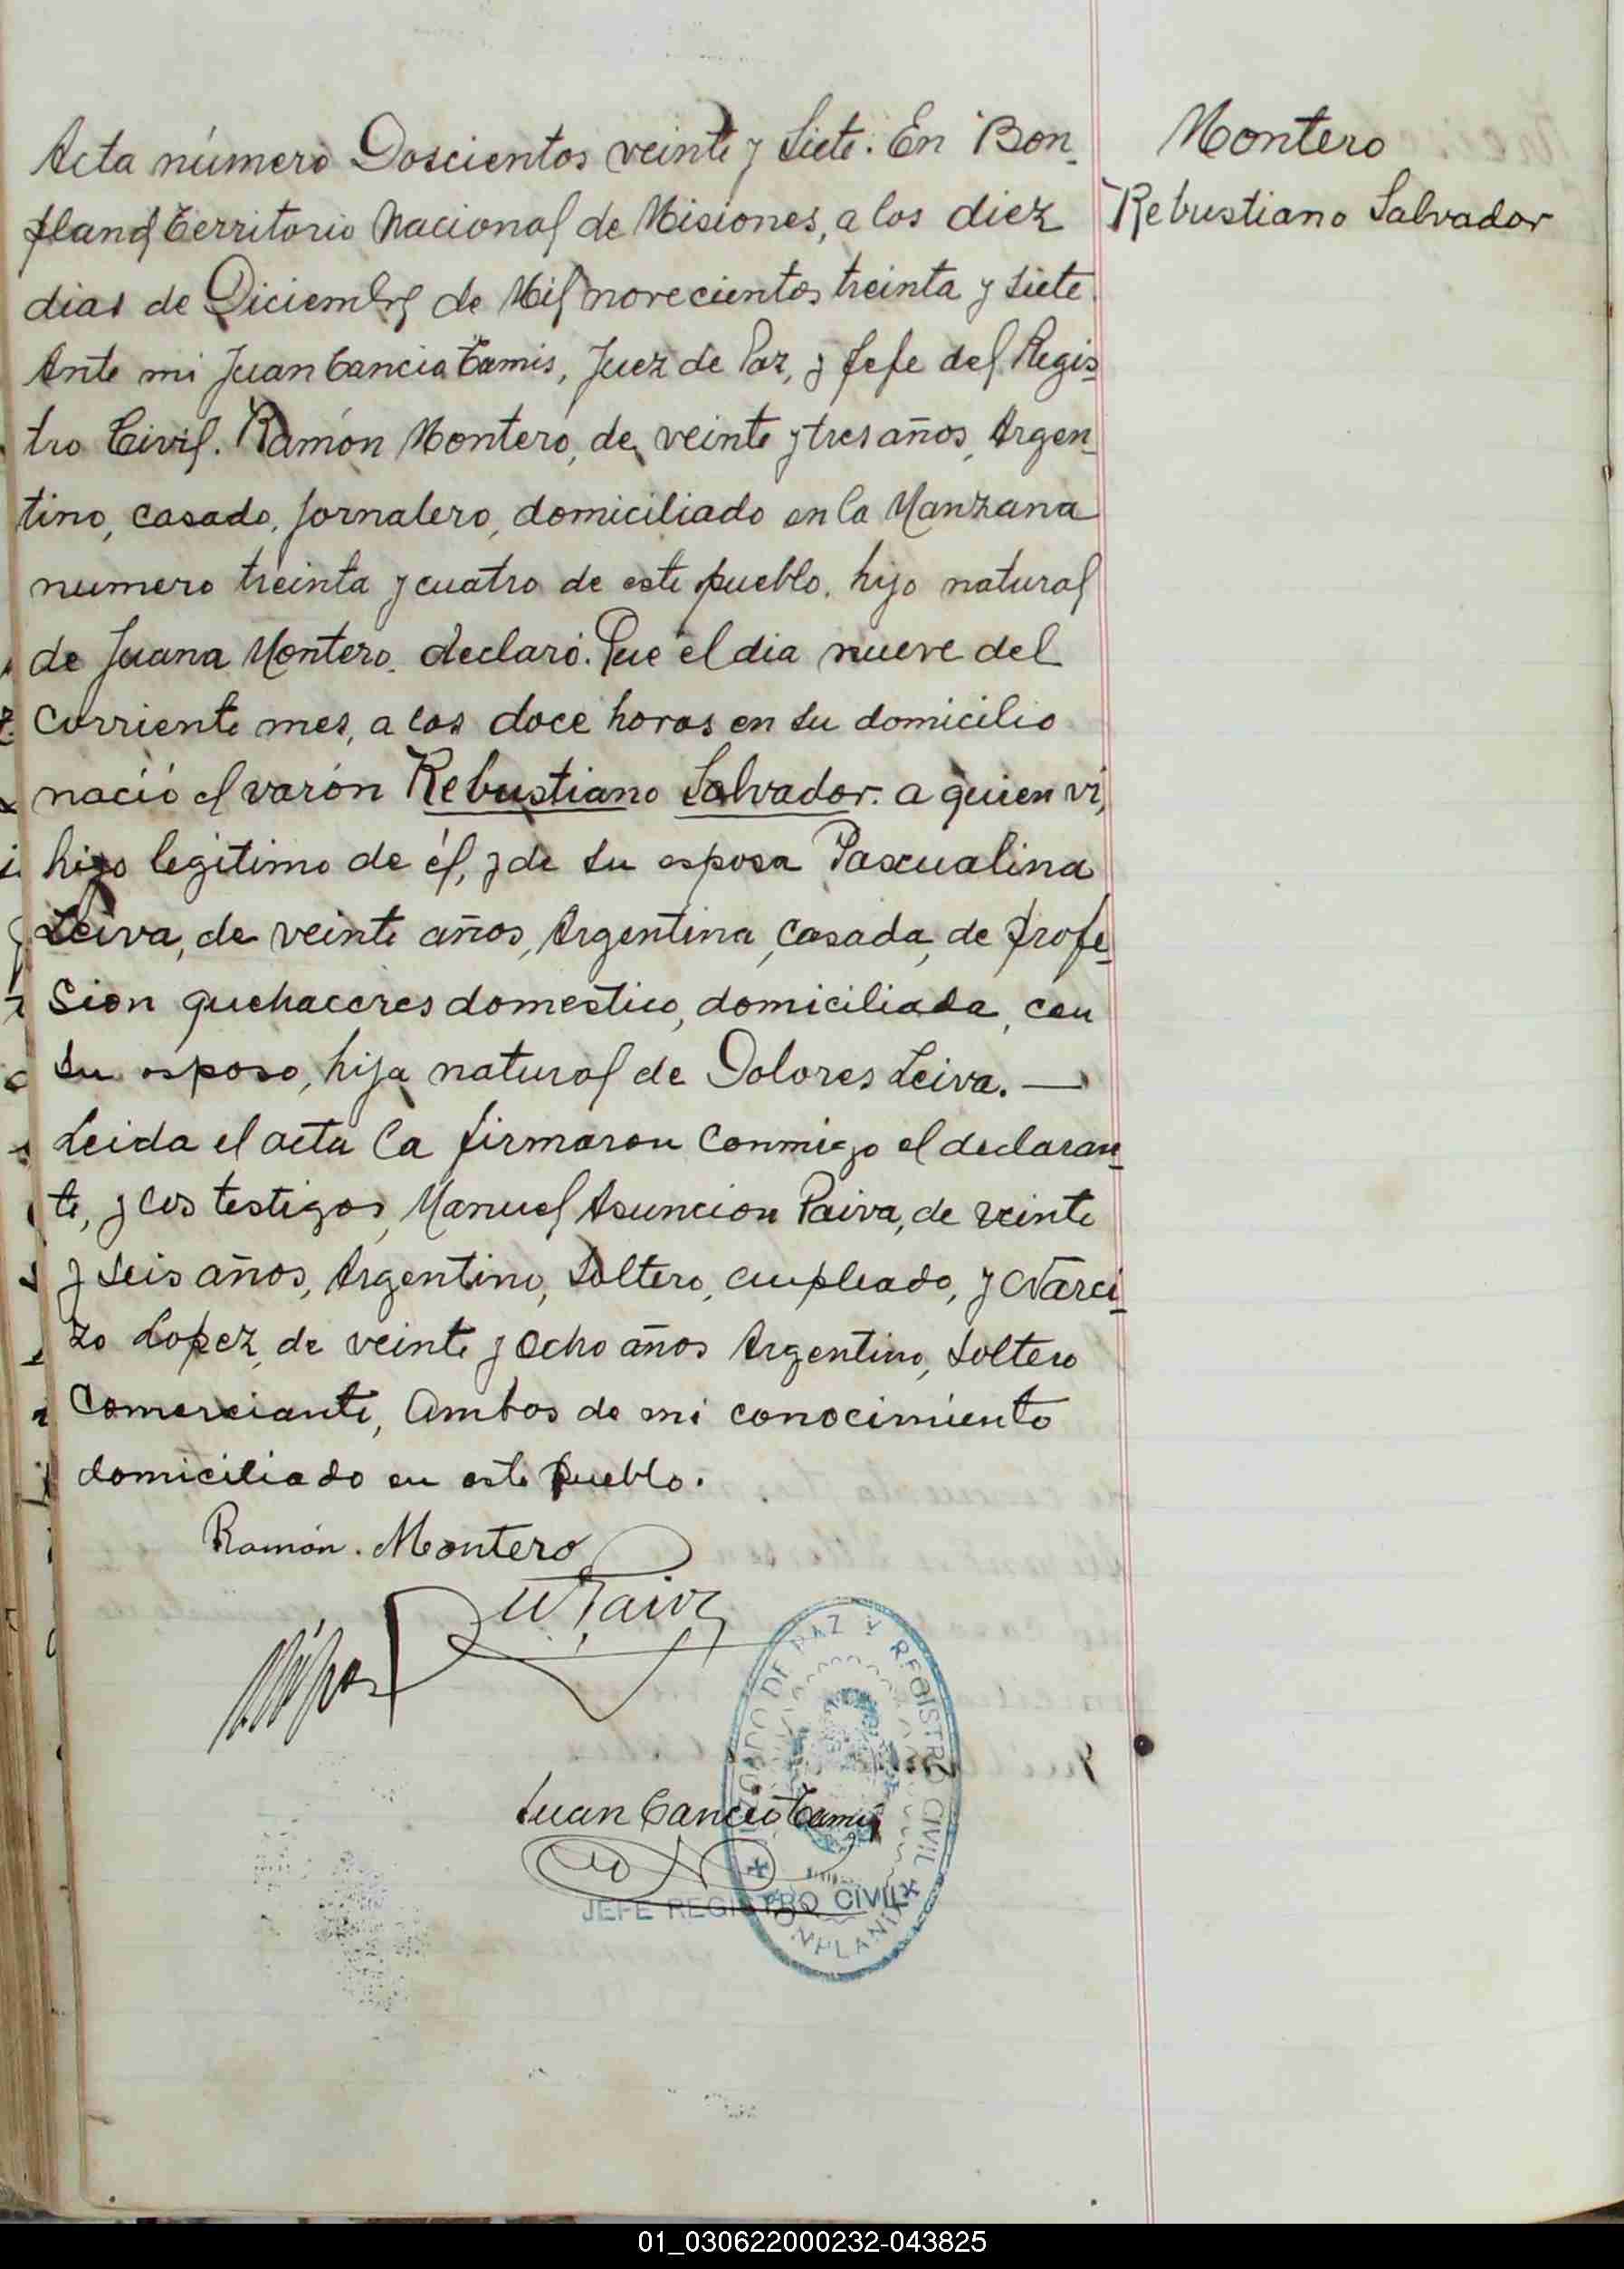 Montero
Rebustiano Salvador
Acta número Doscientos veinte y Siete. En Bon-
pland Territorio Nacional de Misiones, a los diez
dias de Diciembre de Mil novecientos treinta y siete.
Ante mi Juan Cancio Tamis, Juez de Paz, y Jefe del Regis-
tro Civil. Ramón Montero, de veinte y tres años, Argen-
tino, casado, jornalero, domiciliado en la Manzana
numero treinta y cuatro de este pueblo, hijo natural
de Juana Montero, declaró. Que el dia nueve del
Corriente mes, a las doce horas en su domicilio
nació el varón Rebustiano Salvador. a quien vi,
hijo legítimo de él, y de su esposa Pascualina
Leiva, de veinte años, Argentina, casada, de profe-
sion quehaceres domestico, domiciliada, con
su esposo, hija natural de Dolores Leiva. —
Leida el acta la firmaron conmigo el declaran-
te, y los testigos, Manuel Asuncion Paiva, de veinte
y seis años, Argentino, Soltero, empleado, y Narci-
zo Lopez, de veinte y ocho años Argentino, Soltero
Comerciante, Ambos de mi conocimiento
domiciliado en este Pueblo.
Ramón. Montero
Paiva
Juan Cancio Tamis
JUZGADO DE PAZ Y REGISTRO CIVIL
BONPLAND
JEFE REGISTRO CIVIL
01_030622000232-043825